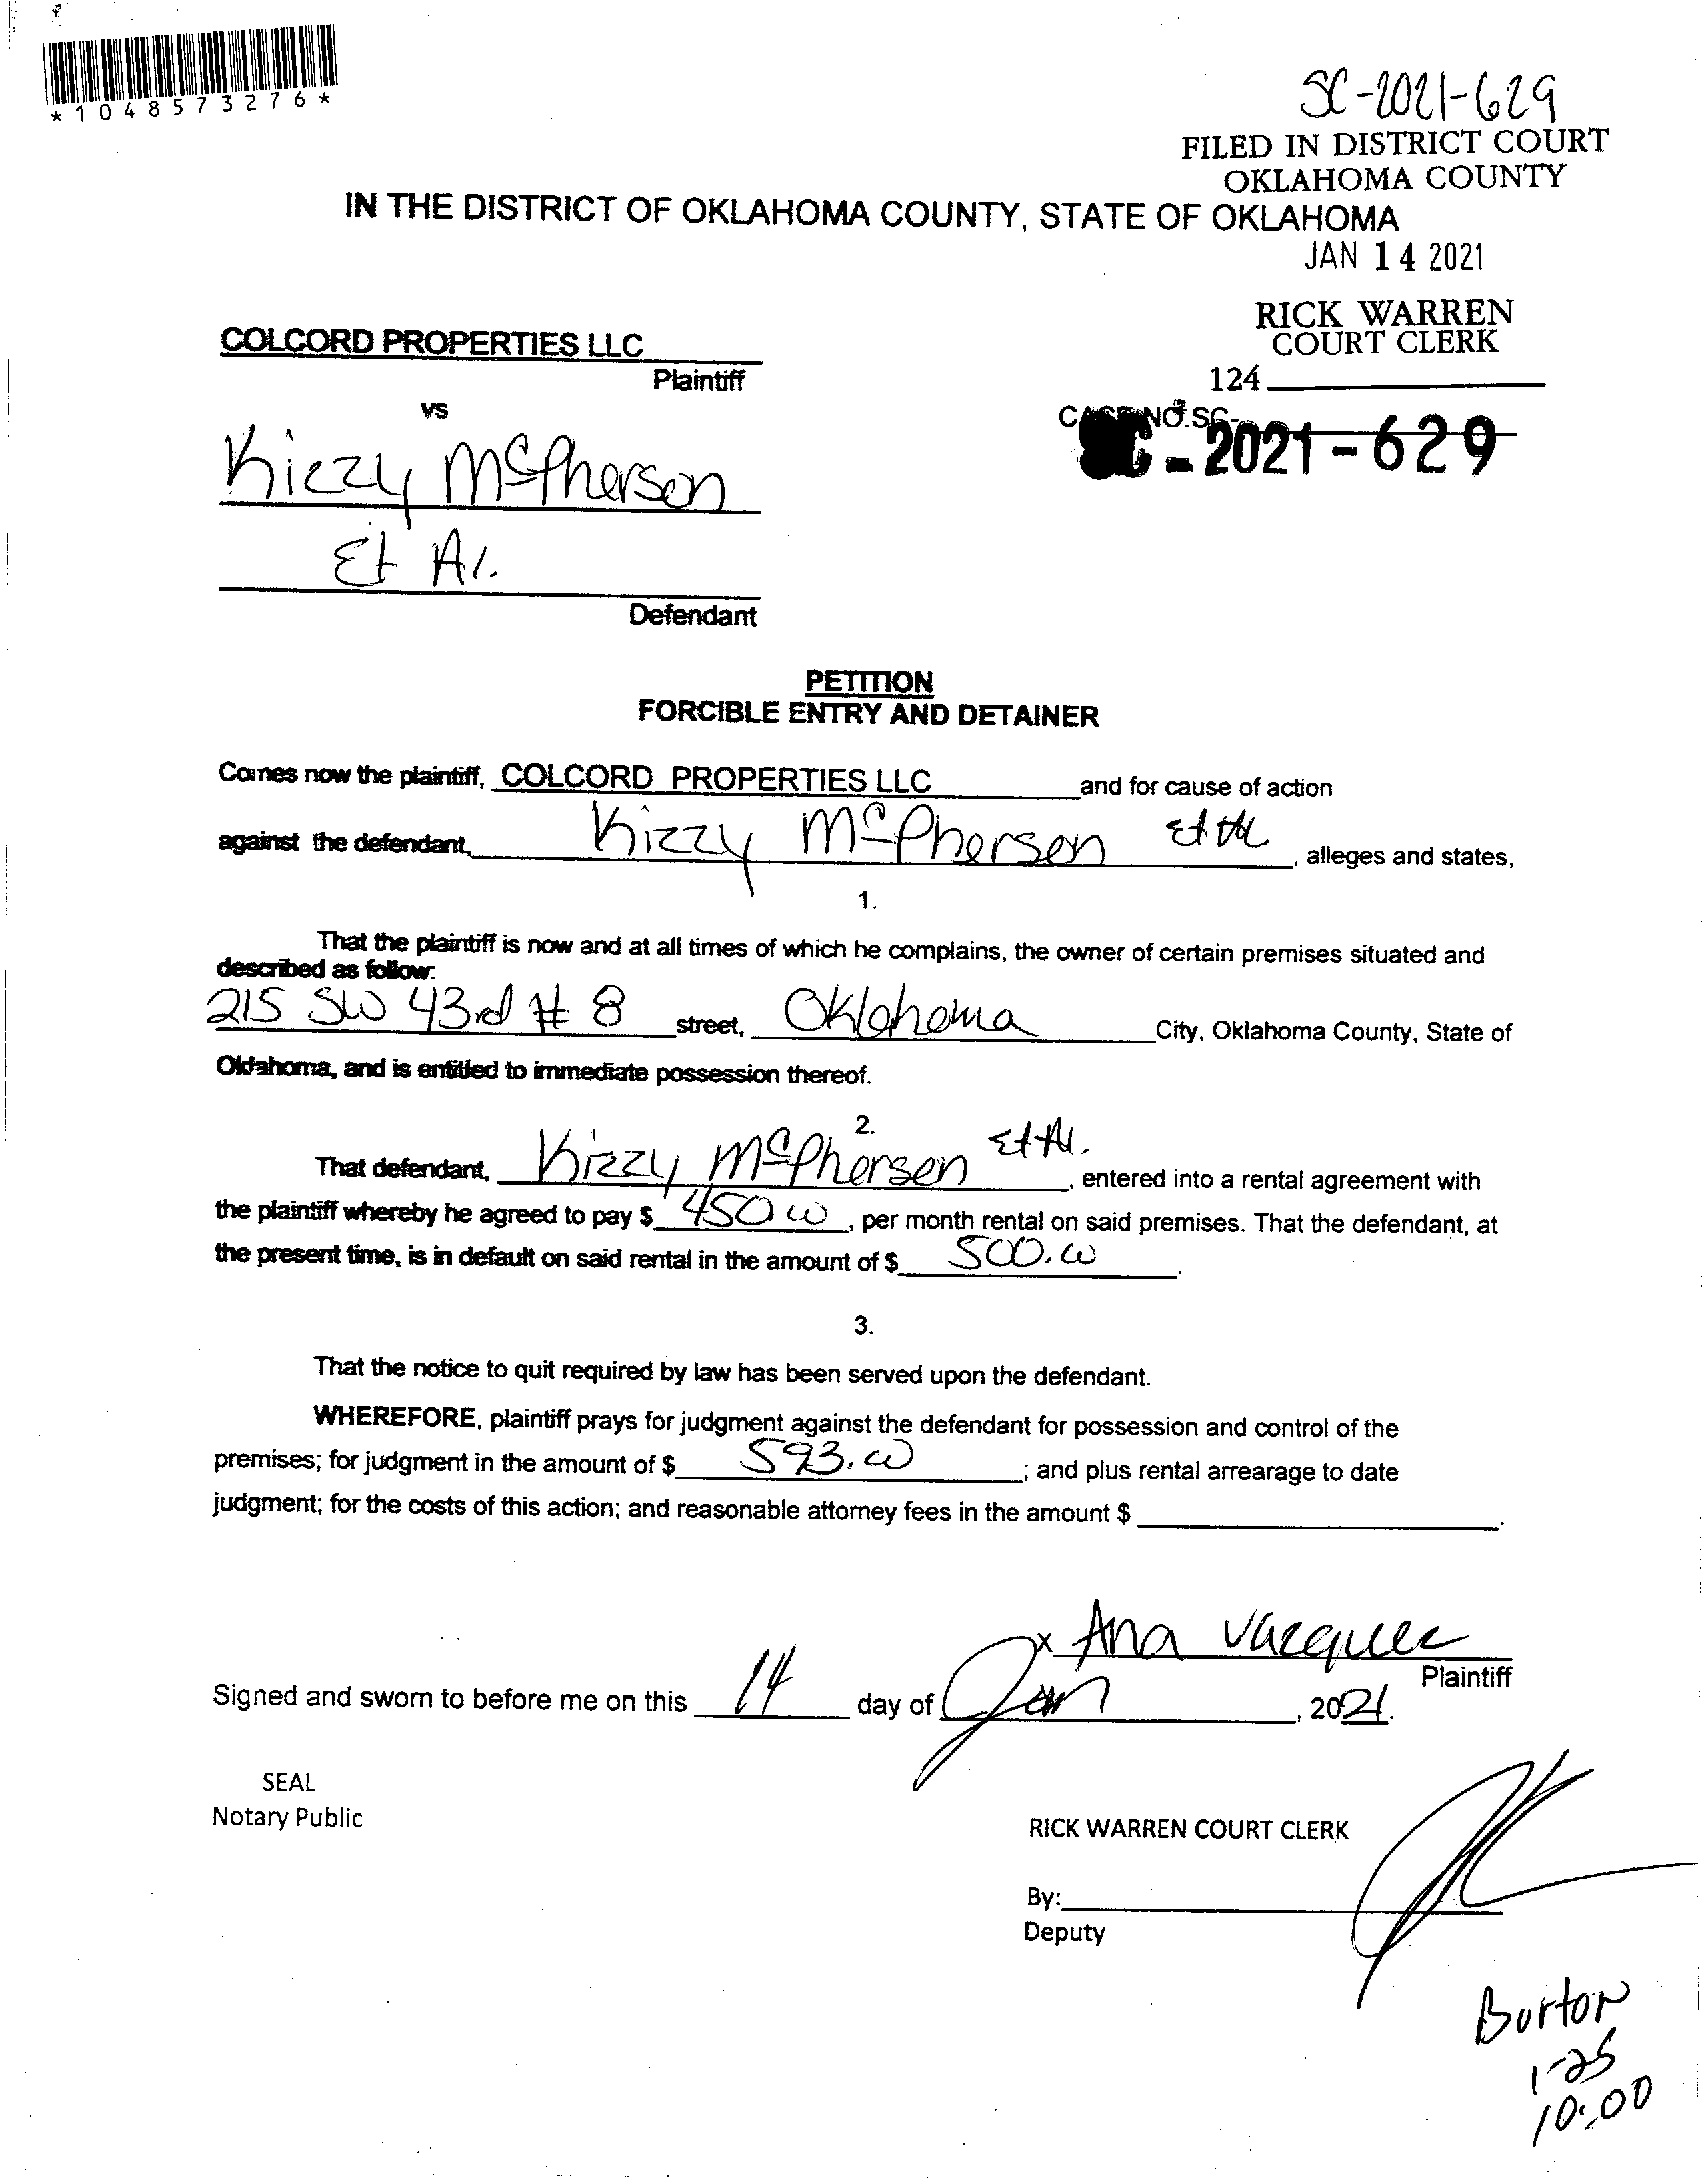 *1048573276*
SC-2021-629
FILED IN DISTRICT COURT
OKLAHOMA COUNTY
IN THE DISTRICT OF OKLAHOMA COUNTY, STATE OF OKLAHOMA
JAN 14 2021
RICK WARREN
COURT CLERK
124
COLCORD PROPERTIES LLC
Plaintiff
CASE NO. SC-
SC-2021-629
vs
Kizzy McPherson
Et Al.
Defendant
PETITION
FORCIBLE ENTRY AND DETAINER
Comes now the plaintiff, COLCORD PROPERTIES LLC and for cause of action
against the defendant, Kizzy McPherson et al, alleges and states,
1.
That the plaintiff is now and at all times of which he complains, the owner of certain premises situated and
described as follow:
215 SW 43rd # 8 street, Oklahoma City, Oklahoma County, State of
Oklahoma, and is entitled to immediate possession thereof.
2.
That defendant, Kizzy McPherson Et Al., entered into a rental agreement with
the plaintiff whereby he agreed to pay $ 450 00, per month rental on said premises. That the defendant, at
the present time, is in default on said rental in the amount of $ 500.00.
3.
That the notice to quit required by law has been served upon the defendant.
WHEREFORE, plaintiff prays for judgment against the defendant for possession and control of the
premises; for judgment in the amount of $ 593.00; and plus rental arrearage to date
judgment; for the costs of this action; and reasonable attorney fees in the amount $
x Ana Vazquez
Plaintiff
Signed and sworn to before me on this 14 day of Jan, 2021.
SEAL
Notary Public
RICK WARREN COURT CLERK
By:
Deputy
Burton
1-25
10:00